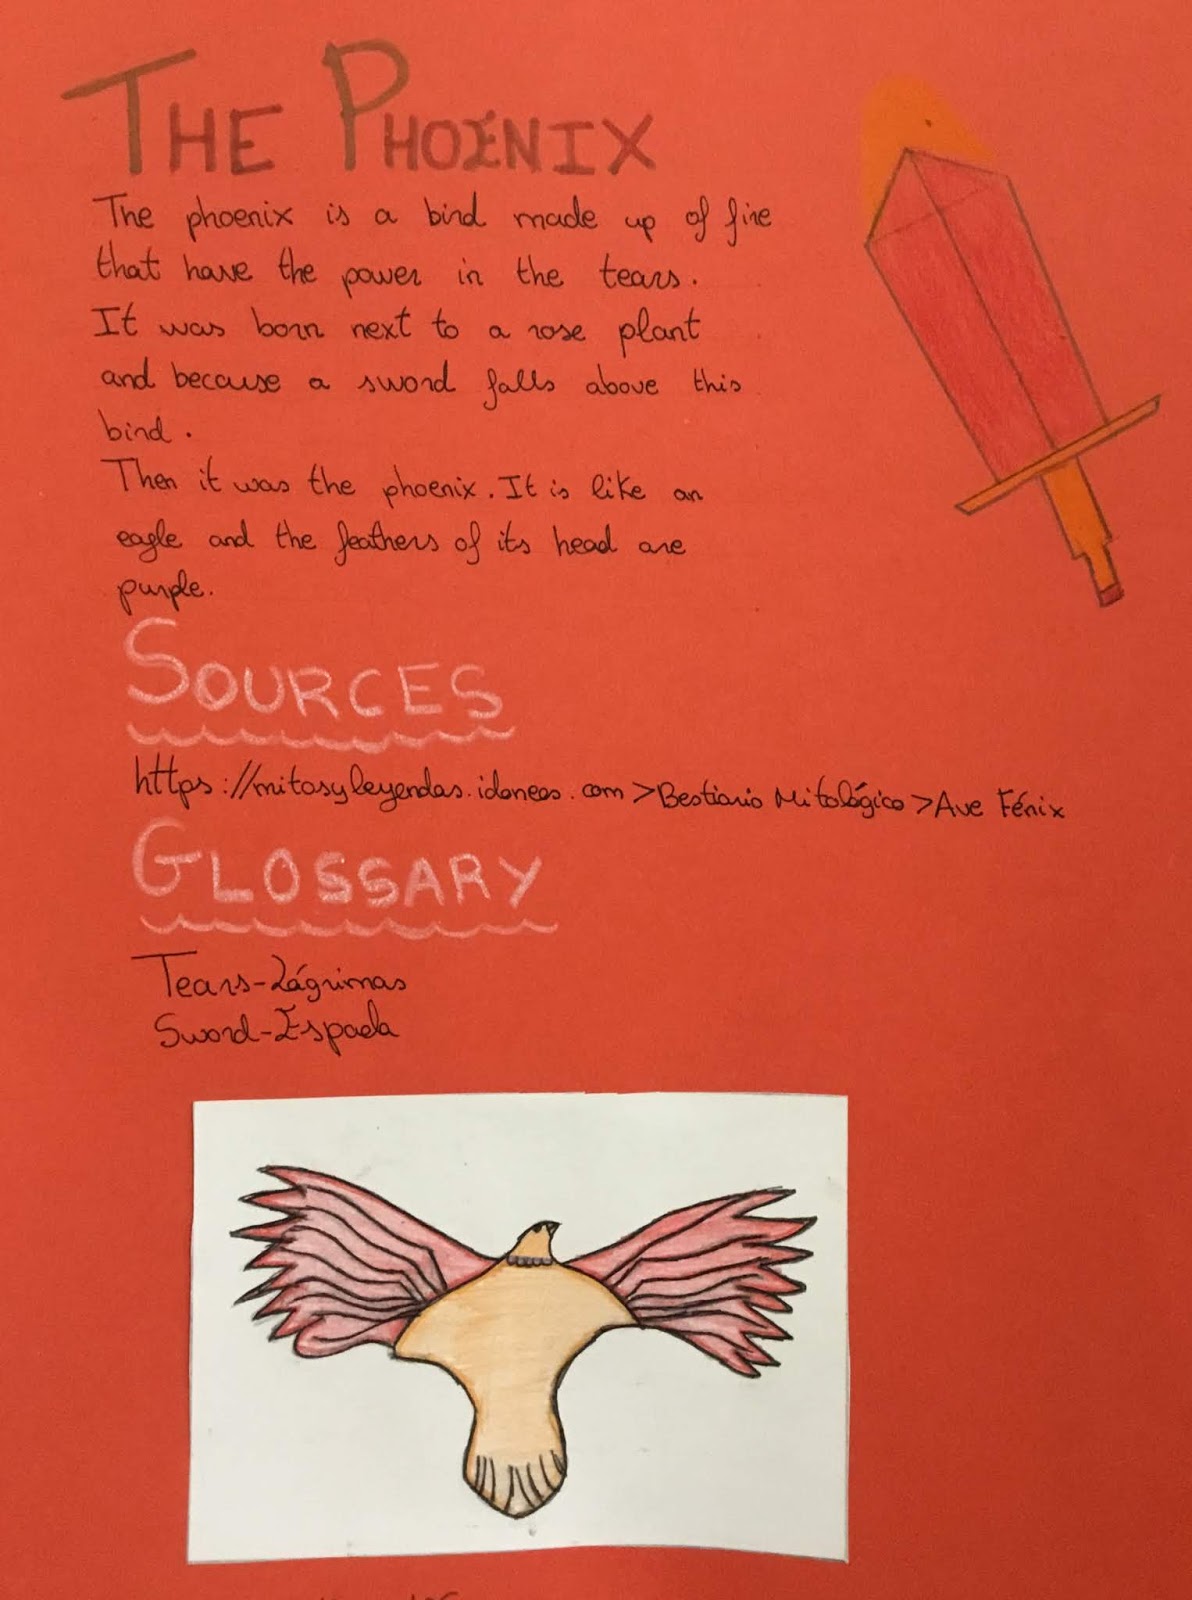 THE PHOENIX
The phoenix is a bird made up of fire
that have the power in the tears.
It was born next to a rose plant
and because a sword falls above this
bird.
Then it was the phoenix. It is like an
eagle and the feathers of its head are
purple.
SOURCES
https://mitosyleyendas.idoneos.com>Bestiario Mitológico>Ave Fénix
GLOSSARY
Tears-Lágrimas
Sword-Espada